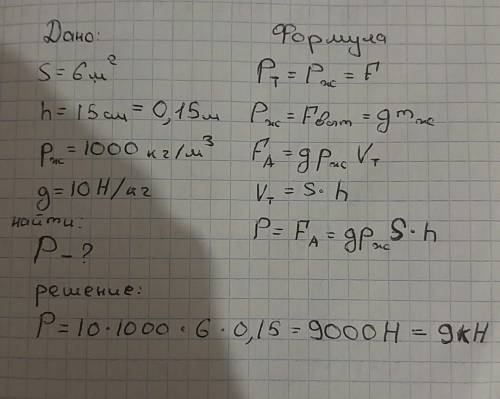 Дано:
S = 6 м²
h = 15 см = 0,15 м
ρж = 1000 кг/м³
g = 10 Н/кг
найти:
P - ?
Формула
Pт = Pж = F
Pж = Fвыт = gmж
FA = gρж Vт
Vт = S · h
P = FA = gρж S · h
решение:
P = 10 · 1000 · 6 · 0,15 = 9000 Н = 9 кН